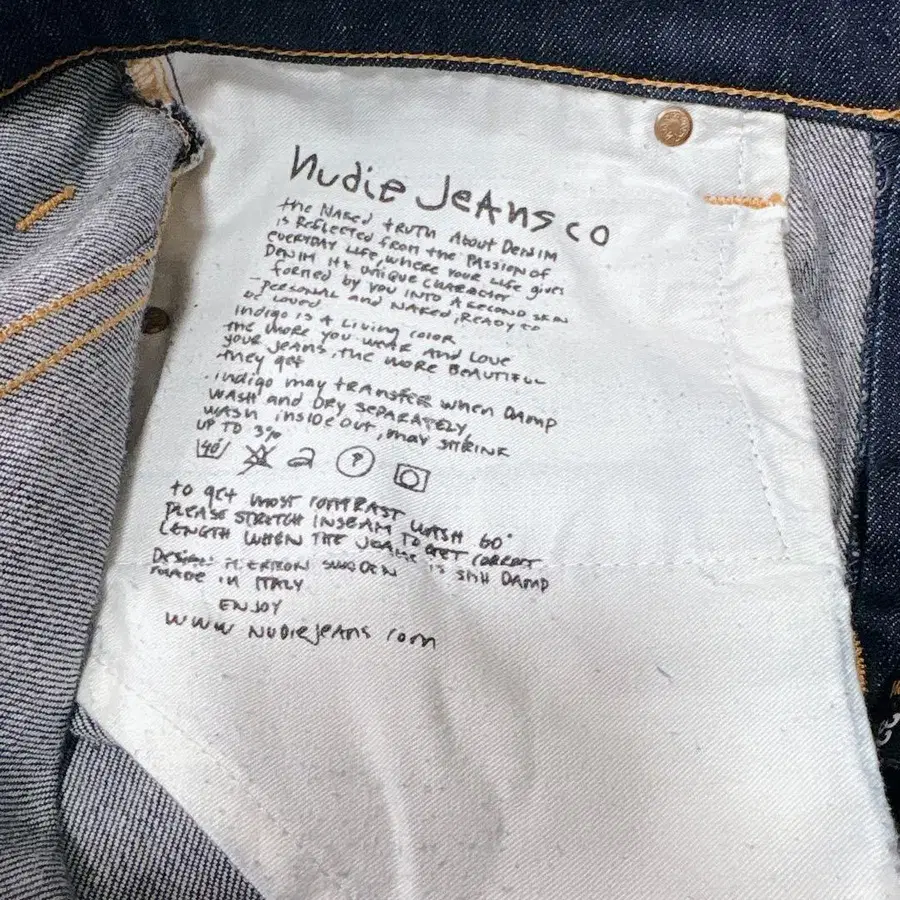 Nudie Jeans co
the NAKED TRUTH About DENIM
is Reflected from the PASSION of
EVERYDAY Life, where YOUR Life gives
DENIM its UNIQUE CHARACTER
formed by YOU INTO A SECOND SKIN
- PERSONAL and NAKED, READY to
be LOVED
Indigo is A Living color
the MORE YOU WEAR AND LOVE
YOUR JEANS, the MORE BEAUTIFUL
they get
. indigo may tRANSFER when DAMP
WASH and DRY SEPARATELY,
WASH inside out, may SHRINK
UP TO 3%
40 P
to get most CONTRAST WASH 60°
PLEASE STRETCH INSEAM TO GET CORRECT
LENGTH WHEN THE JEANS is still DAMP
Design: M. ERIXON SWEDEN
MADE in ITALY
ENJOY
www NUDIEJEANS com